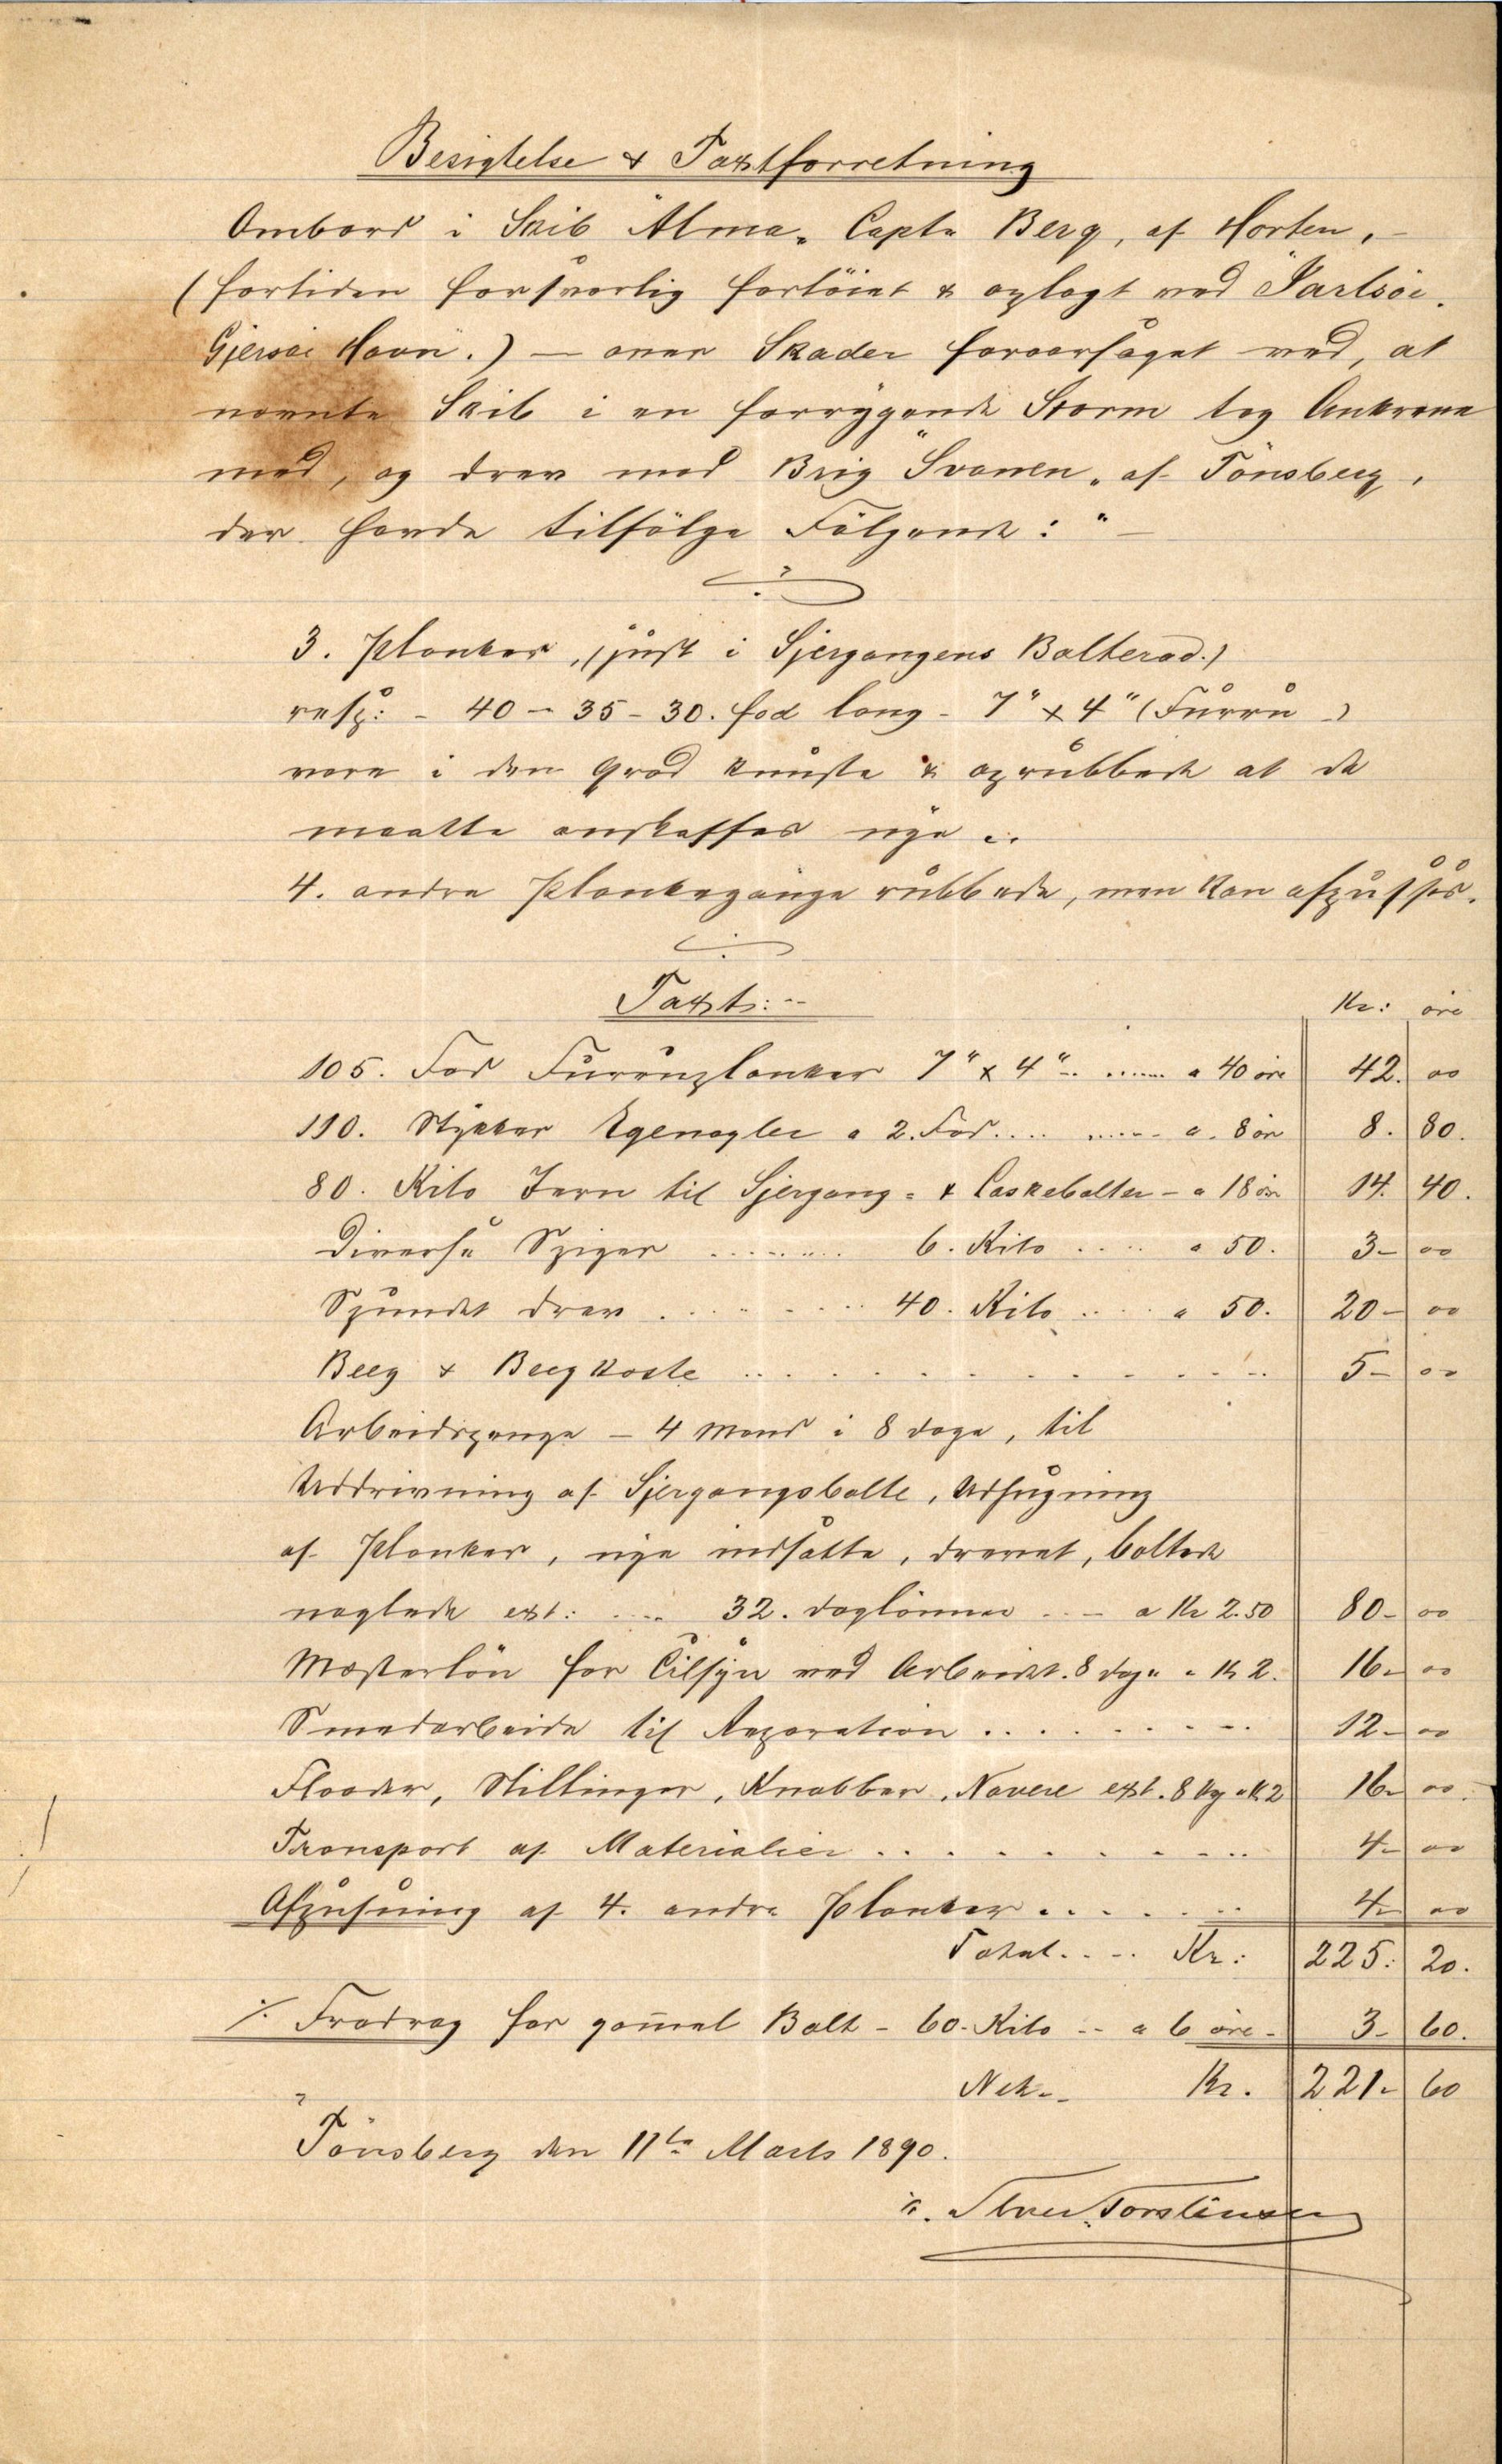 Besigtelse & Taxtforretning
Ombord i Skib "Alma" Capt: Berg, af Horten, –
(fortiden forsvarlig fortöiet & oplagt ved Jarlsöe.
Gjersöe Havn.) – over Skader foraarsaget ved, at
nævnte Skib i en forrygende Storm tog Ankrene
med, og drev mod Brig "Svanen" af Tönsberg,
der havde tilfölge Fölgende: " –
3. Planker, (just i Gjergangens Bolterad.)
resp: – 40 – 35 – 30. fod lang – 7" x 4" (Furru –)
vare i den Grad knuste & oprubbede at de
maatte anskaffes nye ..
4. andre Plankegange rubbede, men kan afpudses.
Taxt: --
Kr: öre
105. Fod Furruplanker 7" x 4" .. ...... a 40 öre 42. 00
110. Stykker Egenagler a 2. Fod .... ...... a. 8 öre 8. 80.
80. Kilo Jern til Gjergang = & Laskebolter – a 18 öre 14. 40.
Diverse Spiger ........ 6. Kilo .... a 50. 3– 00
Spundet drev ........ 40. Kilo .... a 50. 20– 00
Beeg & Beegkoste .............. 5– 00
Arbeidspenge – 4 Mand i 8 dage, til
Uddrivning af Gjergangsbolte, Udhugning
af Planker, nye indsatte, drevet, boltede
naglede ext: .... 32. daglönner .. – a Kr 2.50 80– 00
Mesterlön for Tilsyn ved Arbeidet. 8 dage a Kr 2. 16– 00
Smedarbeide til Reparation ......... 12– 00
Flaader, Stillinger, Knabber, Navere ext. 8 dg a K 2 16– 00.
Transport af Materialier ......... 4– 00
Afpudsning af 4. andre Planker ....... 4– 00
Total .... Kr: 225. 20.
./. Fradrag for gam̄el Bolt – 60. Kilo -- a 6 öre – 3– 60.
Net – Kr. 221– 60
Tönsberg den 11te Marts 1890.
Torstensen